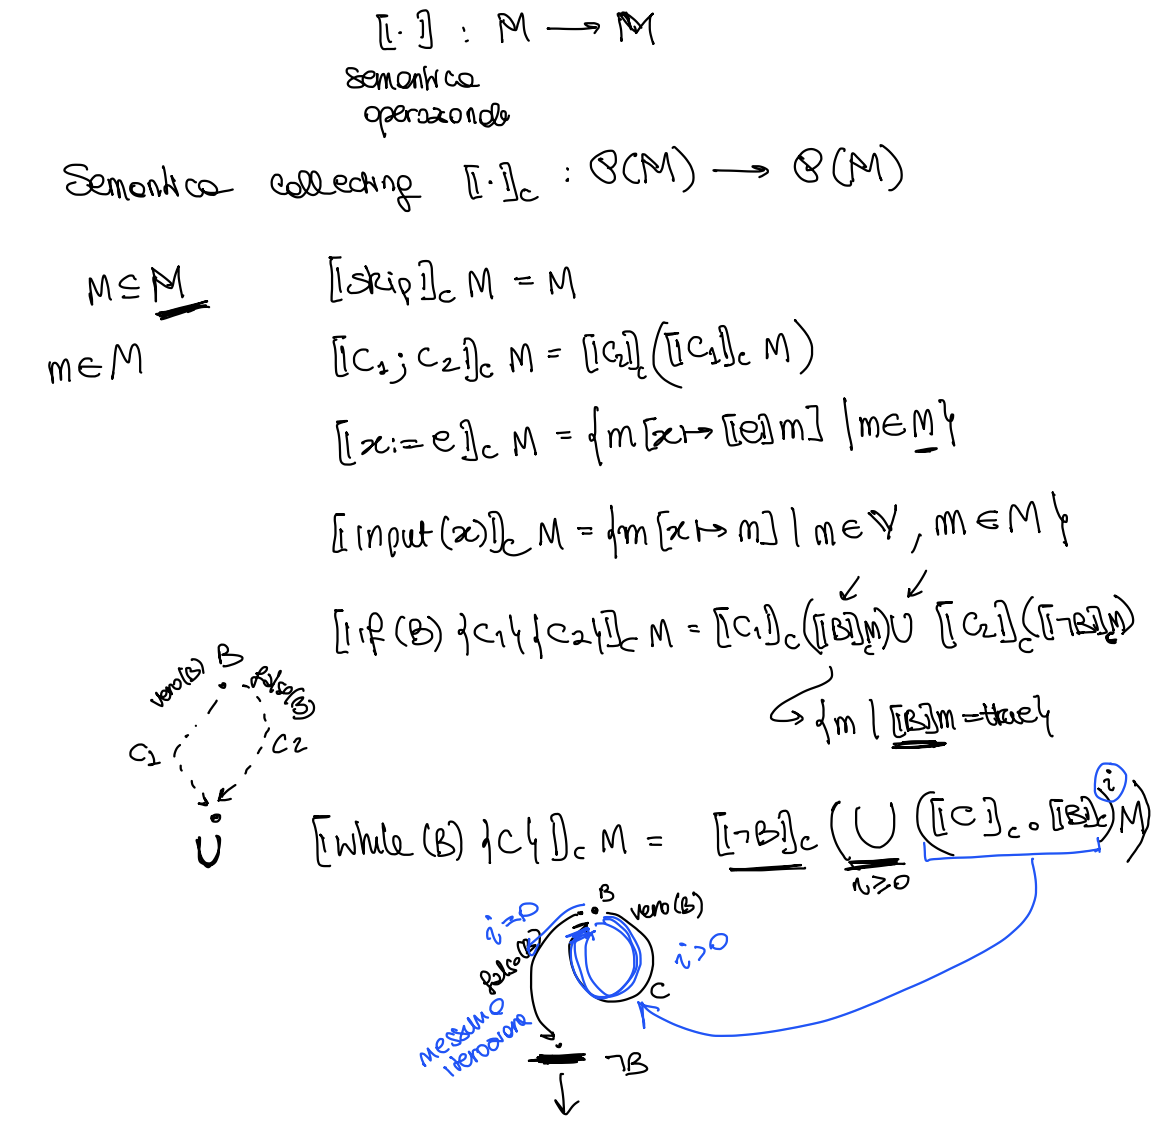 ⟦·⟧ : 𝕄 ⟶ 𝕄
semantica
operazionale
Semantica collecting ⟦·⟧c : ℘(𝕄) ⟶ ℘(𝕄)
M ⊆ 𝕄
⟦skip⟧c M = M
m ∈ M
⟦C1; C2⟧c M = ⟦C2⟧c(⟦C1⟧c M)
⟦x := e⟧c M = {m[x ↦ ⟦e⟧m] | m ∈ M}
⟦input(x)⟧c M = {m[x ↦ n] | n ∈ 𝕍, m ∈ M}
⟦if (B) {C1} {C2}⟧c M = ⟦C1⟧c(⟦B⟧c M) ∪ ⟦C2⟧c(⟦¬B⟧c M)
B
vero(B)
falso(B)
C1
C2
∪
{m | ⟦B⟧m = true}
⟦while (B) {C}⟧c M = ⟦¬B⟧c (⋃ (⟦C⟧c ∘ ⟦B⟧c)^i M)
i ≥ 0
B
vero(B)
i=0
falso(B)
i>0
C
nessuna
iterazione
¬B